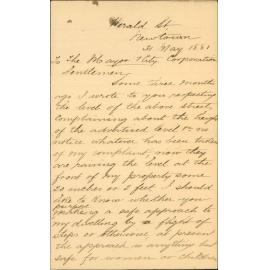 Herald St
Newtown
31 May 1881
To The Mayor & City Corporation
Gentlemen,
Some three months
ago I wrote to you respecting
the level of the above street,
complaining about the height
of the advertised level & no
notice whatever has been taken
of my complaint, now they
are raising the level at the
front of my property some
20 inches or 2 feet, I should
like to know whether you
purpose
making a safe approach to
my dwelling by a flight of
steps or otherwise, at present
the approach is anything but
safe for women or children